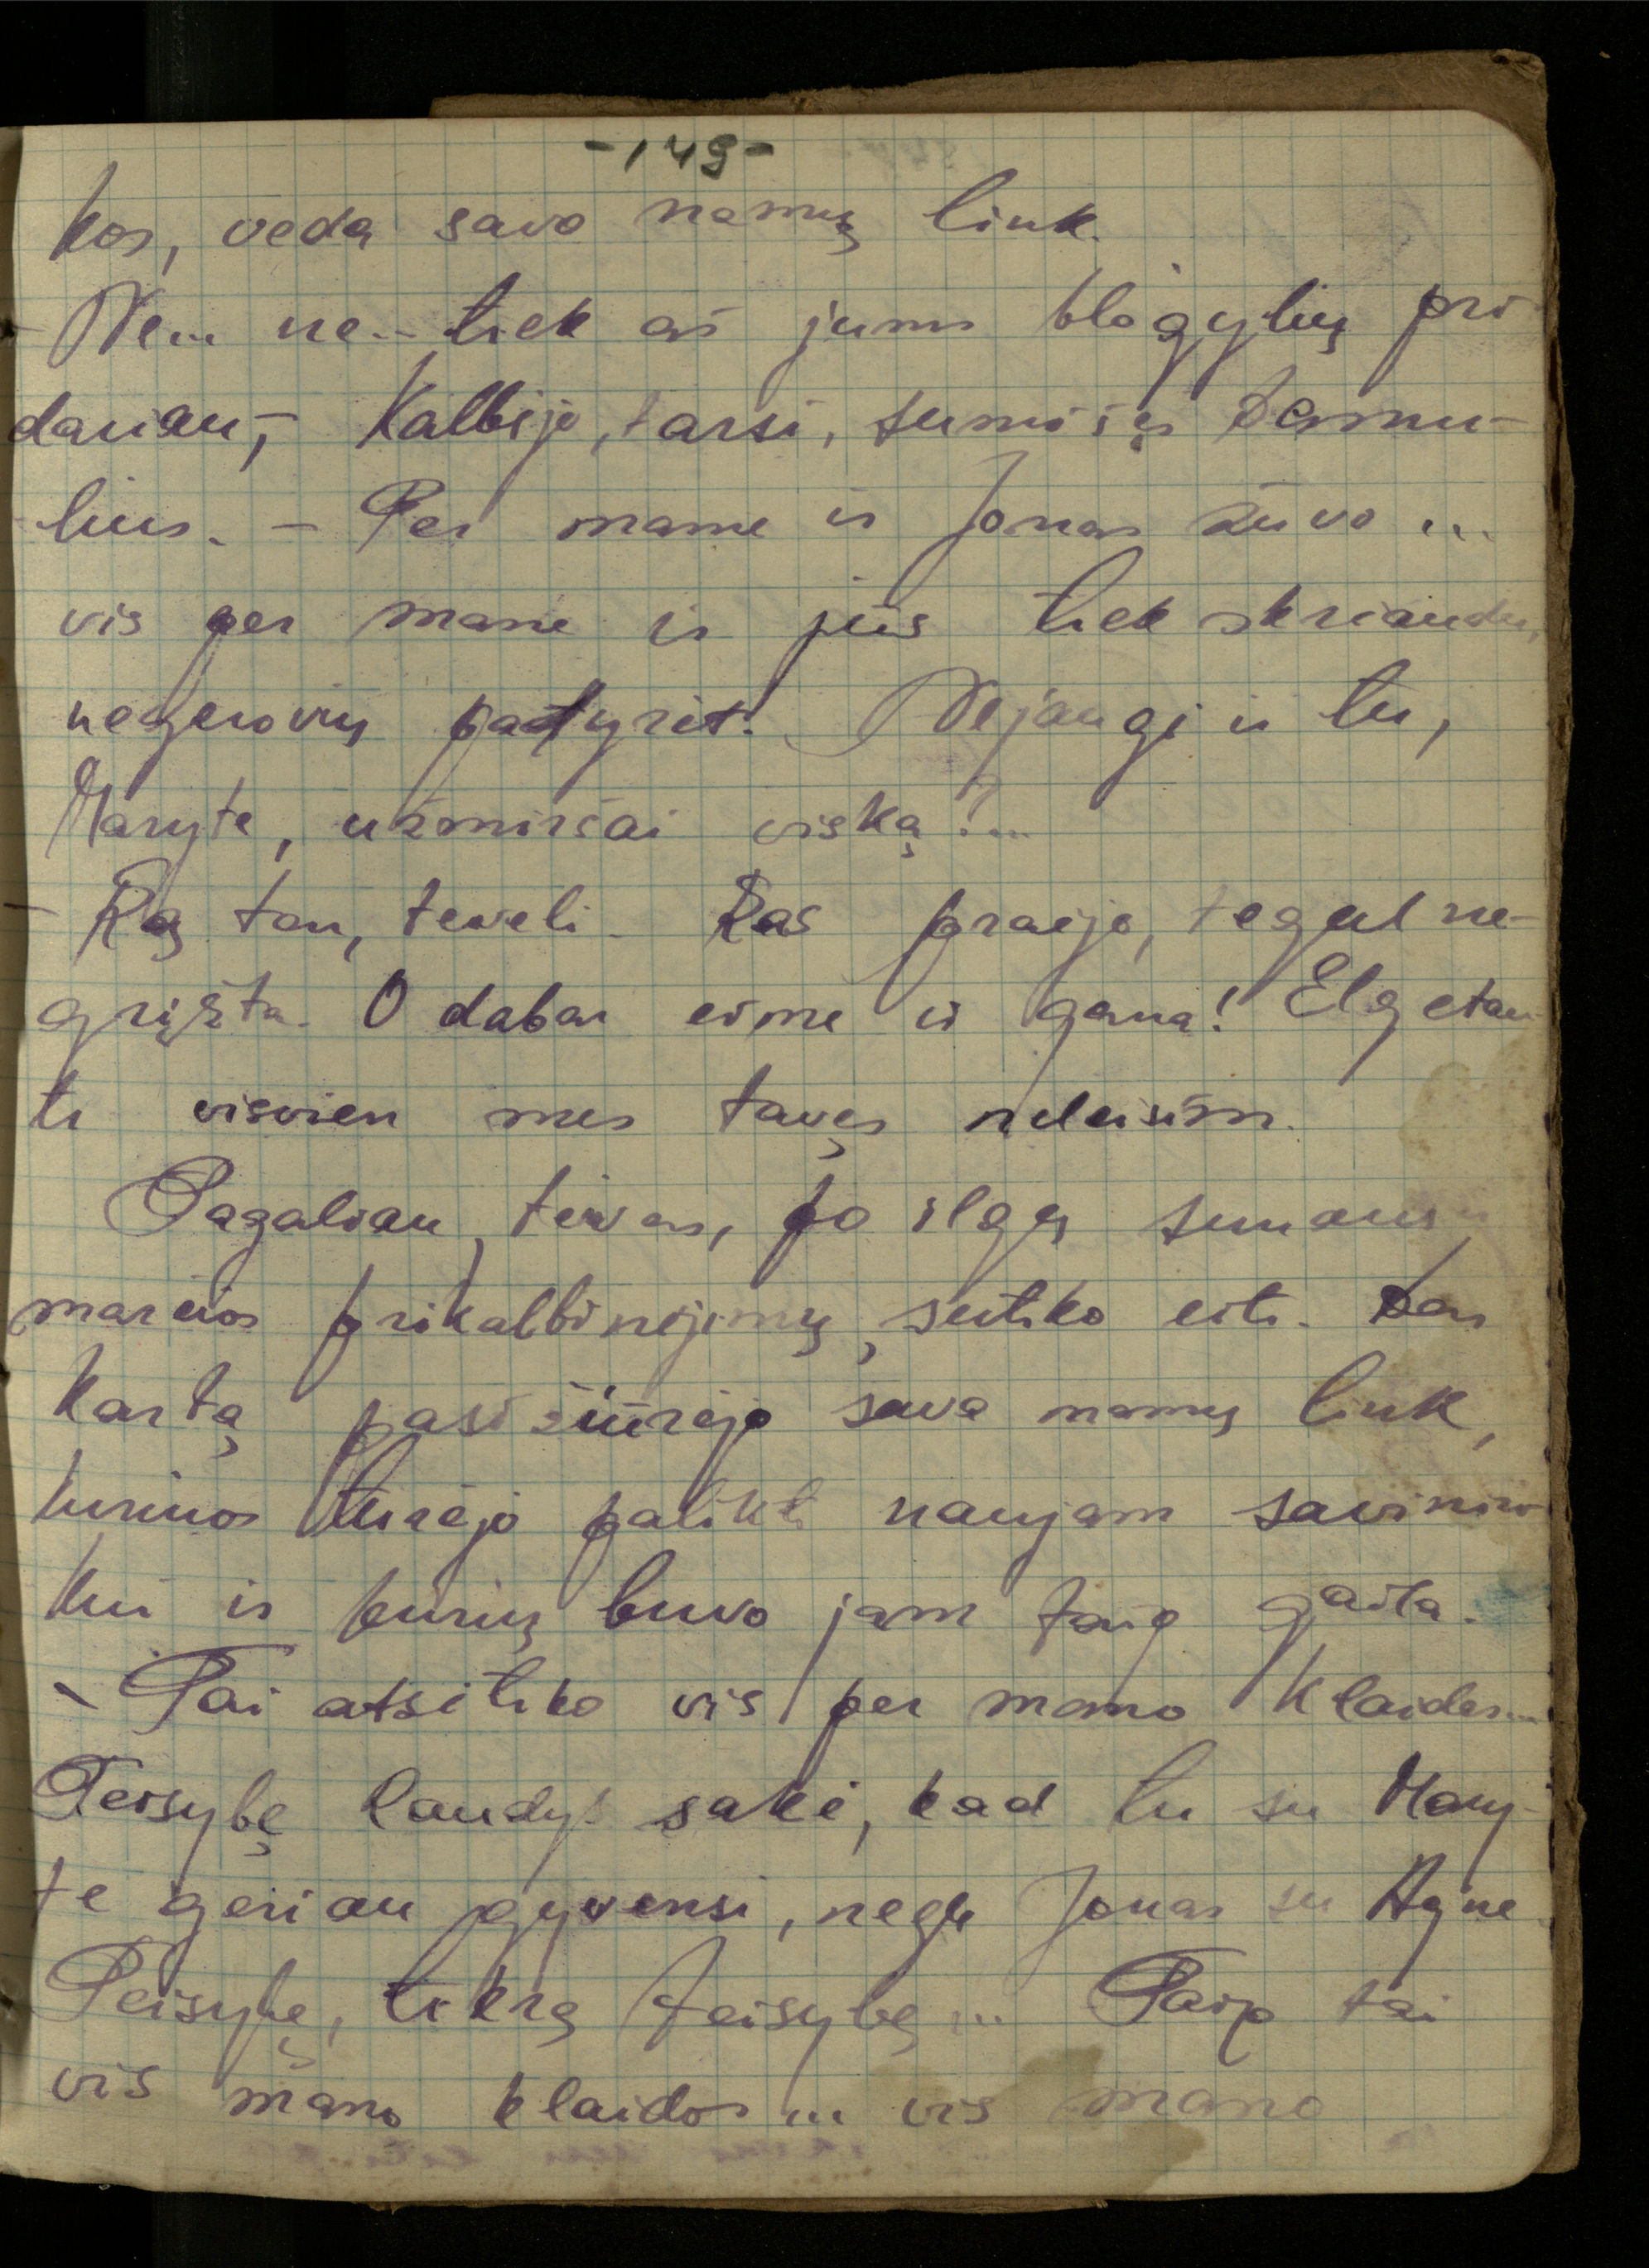 -149-
kos, veda savo namų link.
- Ne... ne... tiek aš jums blogybių pri-
dariau,- kalbėjo, tarsi, sumišęs Ramu-
lius. - Per mane ir Jonas žuvo...
vis per mane ir jūs tiek skriaudų,
negerovių patyrėt! Nejaugi ir tu,
Maryte, užmiršai viską?!...
- Ką tau, tėveli. Kas praėjo, tegul ne-
grįžta. O dabar eime ir gana! Elgetau-
ti visvien mes tavęs neleisim.
Pagaliau, tėvas, po ilgų sunaus,
marčios prikalbinėjimų, sutiko eiti. Dar
kartą pasižiūrėjo savo namų link,
kuriuos turėjo palikt naujam savinin-
kui ir kurių buvo jam taip gaila.
- Tai atsitiko vis per mano klaidas...
Teisybę saké, kad tu su Mary-
te geriau gyvensi, negu Jonas su Agne.
Teisybę, tikrą teisybę... Taip tai
vis mano klaidos... vis mano